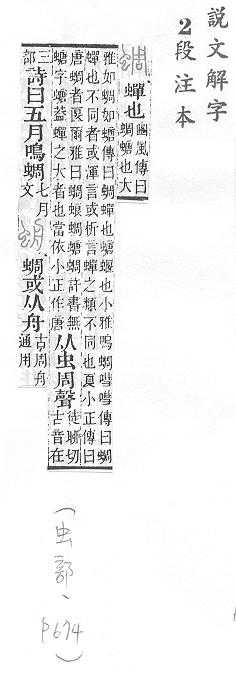 說文解字
2段注本
蜩
蟬也豳風傳曰
蜩螗也大
雅如蜩如螗傳曰蜩蟬也螗蝘也小雅鳴蜩嘒嘒傳曰蜩
蟬也不同者或渾言或析言蟬之類不同也夏小正傳曰
唐蜩者匽爾雅曰蜩蜋蜩螗蜩許書無
螗字螗蓋蟬之大者也當依小正作唐
从虫周聲
徒聊切
古音在
三
部
詩曰五月鳴蜩
七月
文
蜩或从舟
古周舟
通用
(虫部、p674)